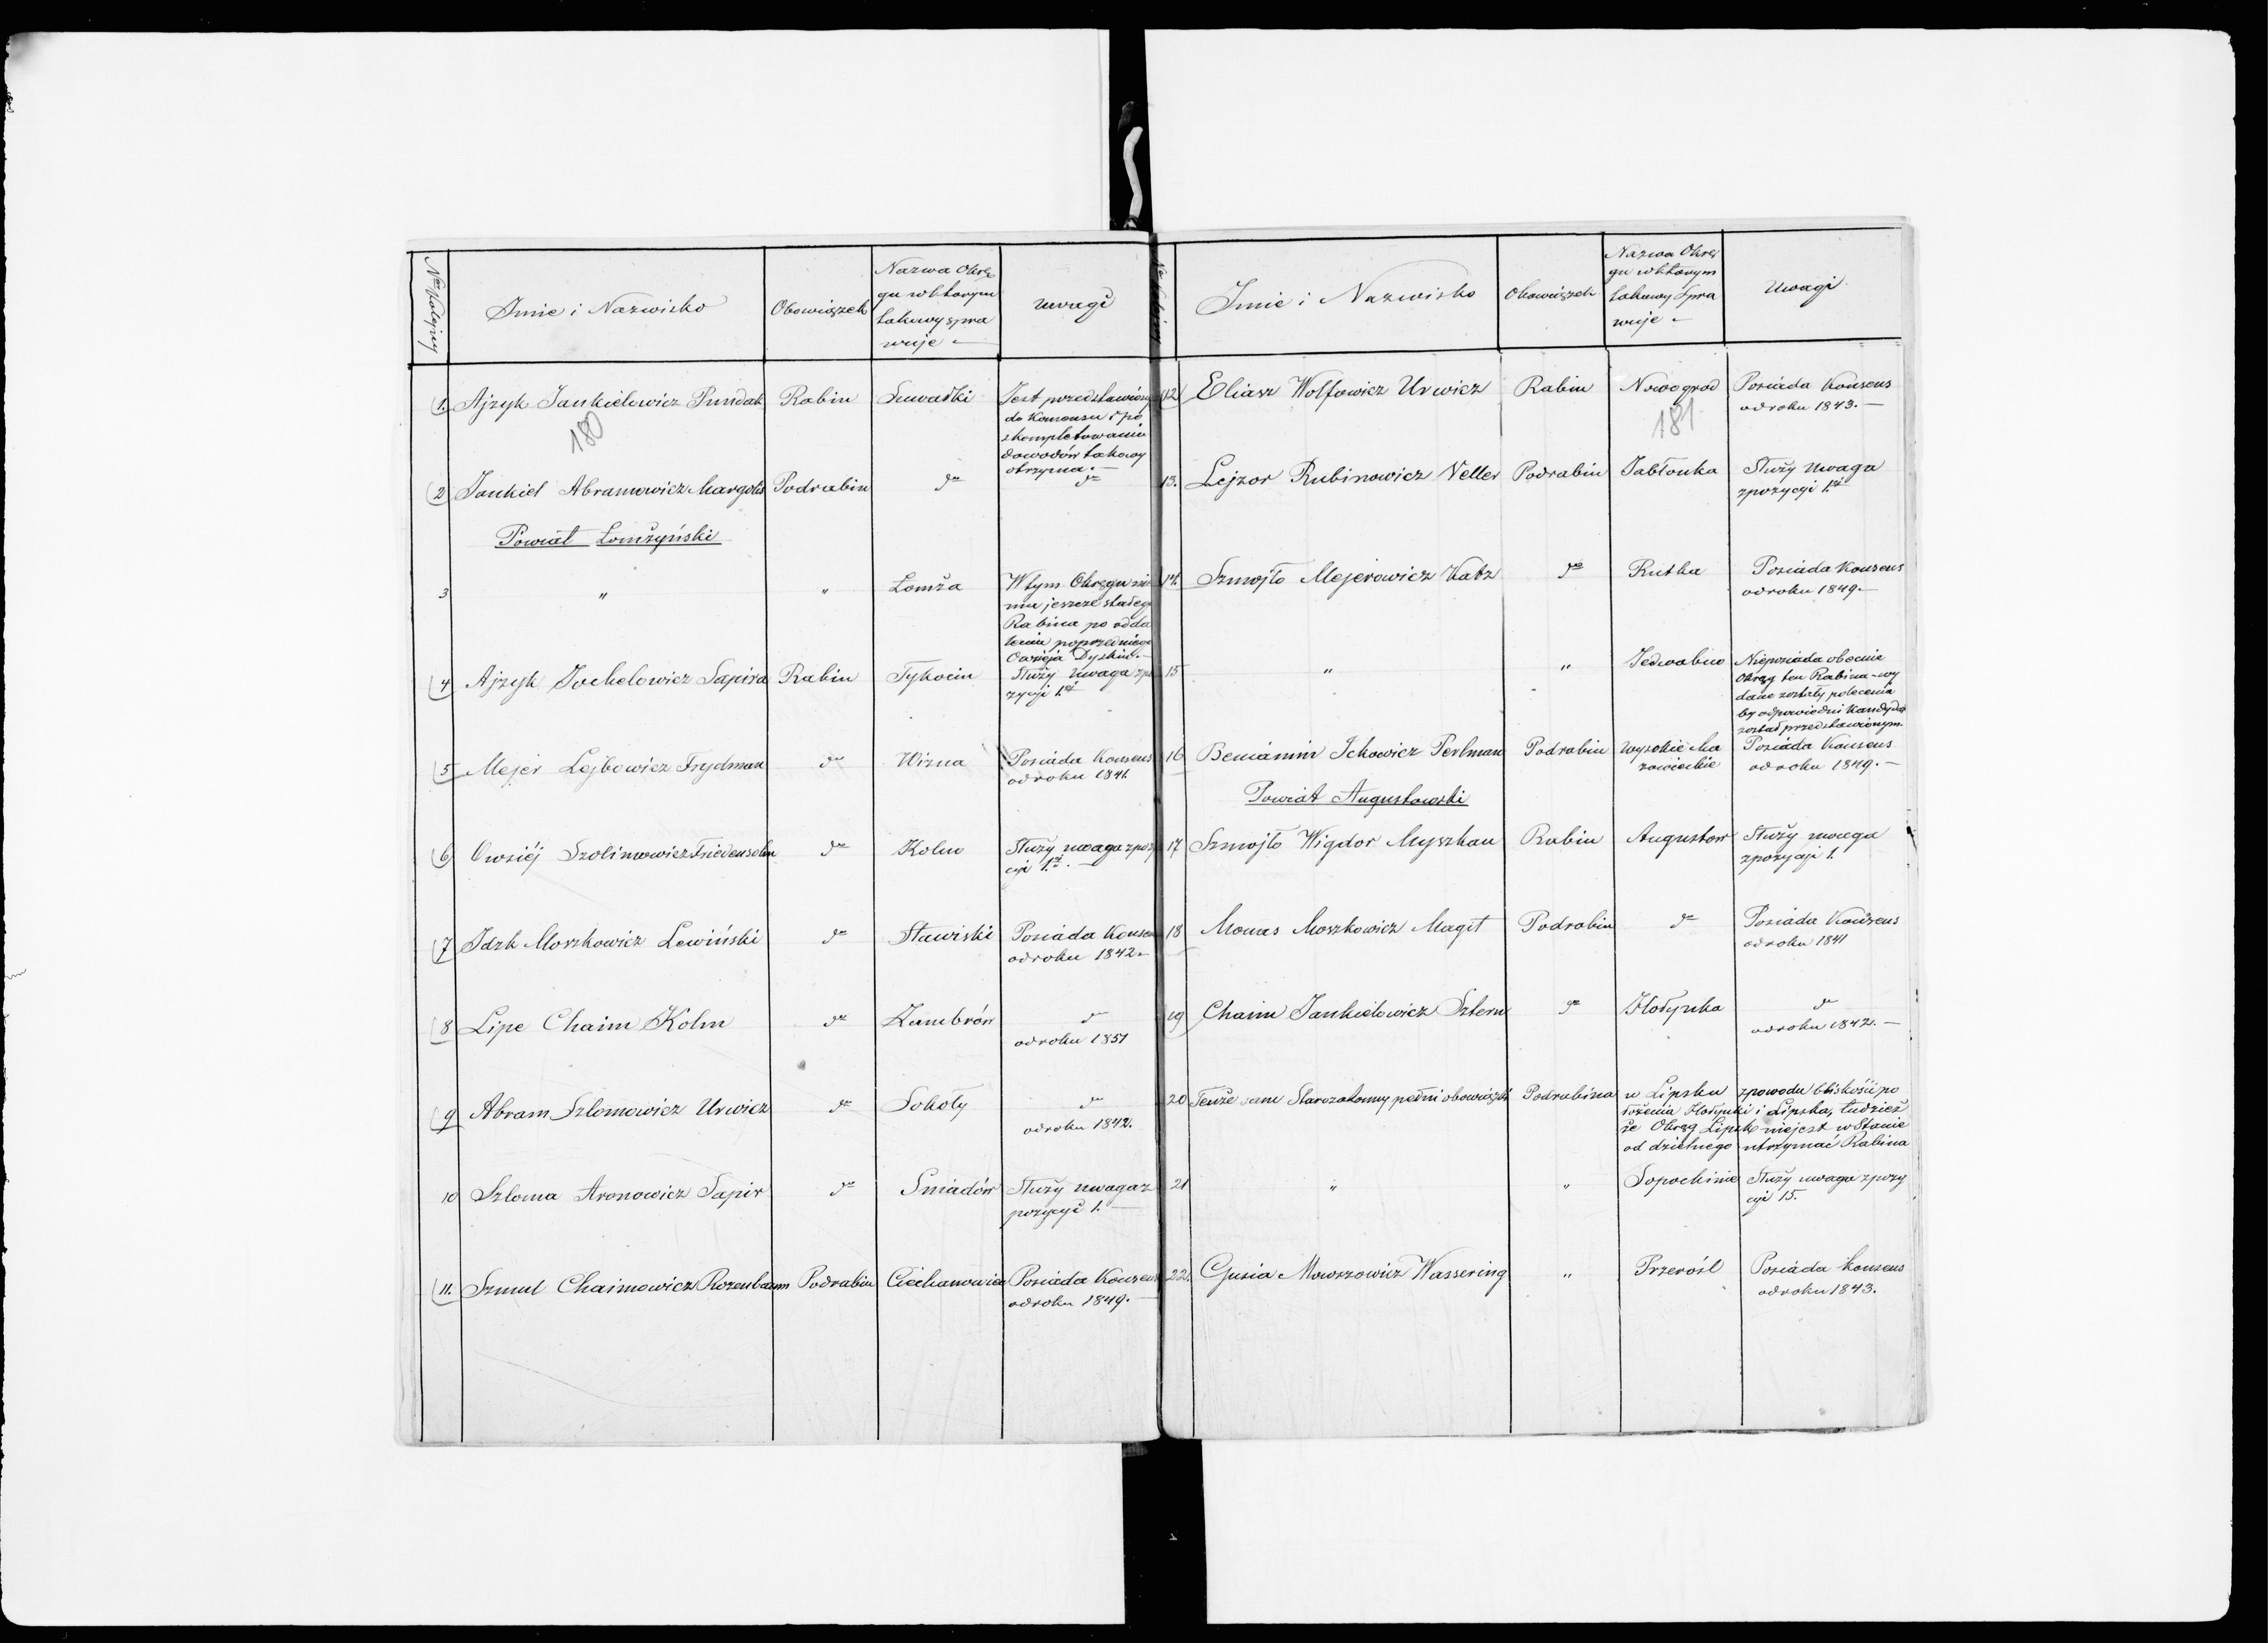 Nro Kolejny
Imie i Nazwisko
Obowiązek
Nazwa Okrę
gu w którym
takowy spra
wuje
Uwagi
1. Ajzyk Jankielowicz Pundak Rabin Suwałki Jest przedstawiony
do Konsensu i po
skompletowaniu
dowodów takowy
otrzyma. —
180
2 Jankiel Abramowicz Margolis Podrabin do do
Powiat Łomżyński
3 " " Łomża W tym Okręgu nie
ma jeszcze stałego
Rabina po odda
leniu poprzedniego
Owsieja Dyskin. —
4 Ajzyk Jochelowicz Sapira Rabin Tykocin Służy Uwaga z po
zycji 1éj
5 Mejer Lejbowicz Frydman do Wizna Posiada Konsens
od roku 1841.
6 Owsiéj Szolimowicz Friedensohn do Kolno Służy uwaga z pozy
cyi 1éj. —
7 Idzk Moszkowicz Lewiński do Stawiski Posiada Konsens
od roku 1842 —
8 Lipe Chaim Kolm do Zambrów do
od roku 1851
9 Abram Szlomowicz Urwicz do Sokoły do
od roku 1842.
10 Szloma Aronowicz Sapir do Sniadów Służy uwaga z
pozycyi 1. —
11. Szmul Chaimowicz Rozenbaum Podrabin Ciechanowiec Posiada Konsens
od roku 1849. —
Nro Kolejny
Imie i Nazwisko
Obowiązek
Nazwa Okrę
gu w którym
takowy Spra
wuje
Uwagi
12 Eliasz Wolfowicz Urwicz Rabin Nowogród Posiada Konsens
od roku 1843. —
181
13. Lejzor Rubinowicz Veller Podrabin Jabłonka Służy Uwaga
z pozycyi 1éj
14. Szmojło Mejerowicz Katz do Rutka Posiada Konsens
od roku 1849. —
15 " " Jedwabno Nieposiada obecnie
Okręg ten Rabina – wy
dane zostały polecenia
by odpowiedni Kandydat
został przedstawionym.
16 Beniamin Ickowicz Perlman Podrabin Wysokie Ma
zowieckie
Posiada Konsens
od roku 1849. —
Powiat Augustowski
17 Szmojło Wigdor Myszkan Rabin Augustow Służy uwaga
z pozycyi 1.
18 Mones Moszkowicz Magit Podrabin do Posiada Konsens
od roku 1841
19 Chaim Jankielowicz Sztern do Hołynka do
od roku 1842. —
20 Tenże sam Starozakonny pełni obowiązki Podrabina w Lipsku z powodu bliskości po
łożenia Hołynki i Lipska, tudzież
że Okręg Lipsk niejest w Stanie
oddzielnego utrzymać Rabina
21 " " Sopockinie Służy uwaga z pozy
cyi 15.
22. Gusia Mowszowicz Wassering " Przerośl Posiada konsens
od roku 1843.